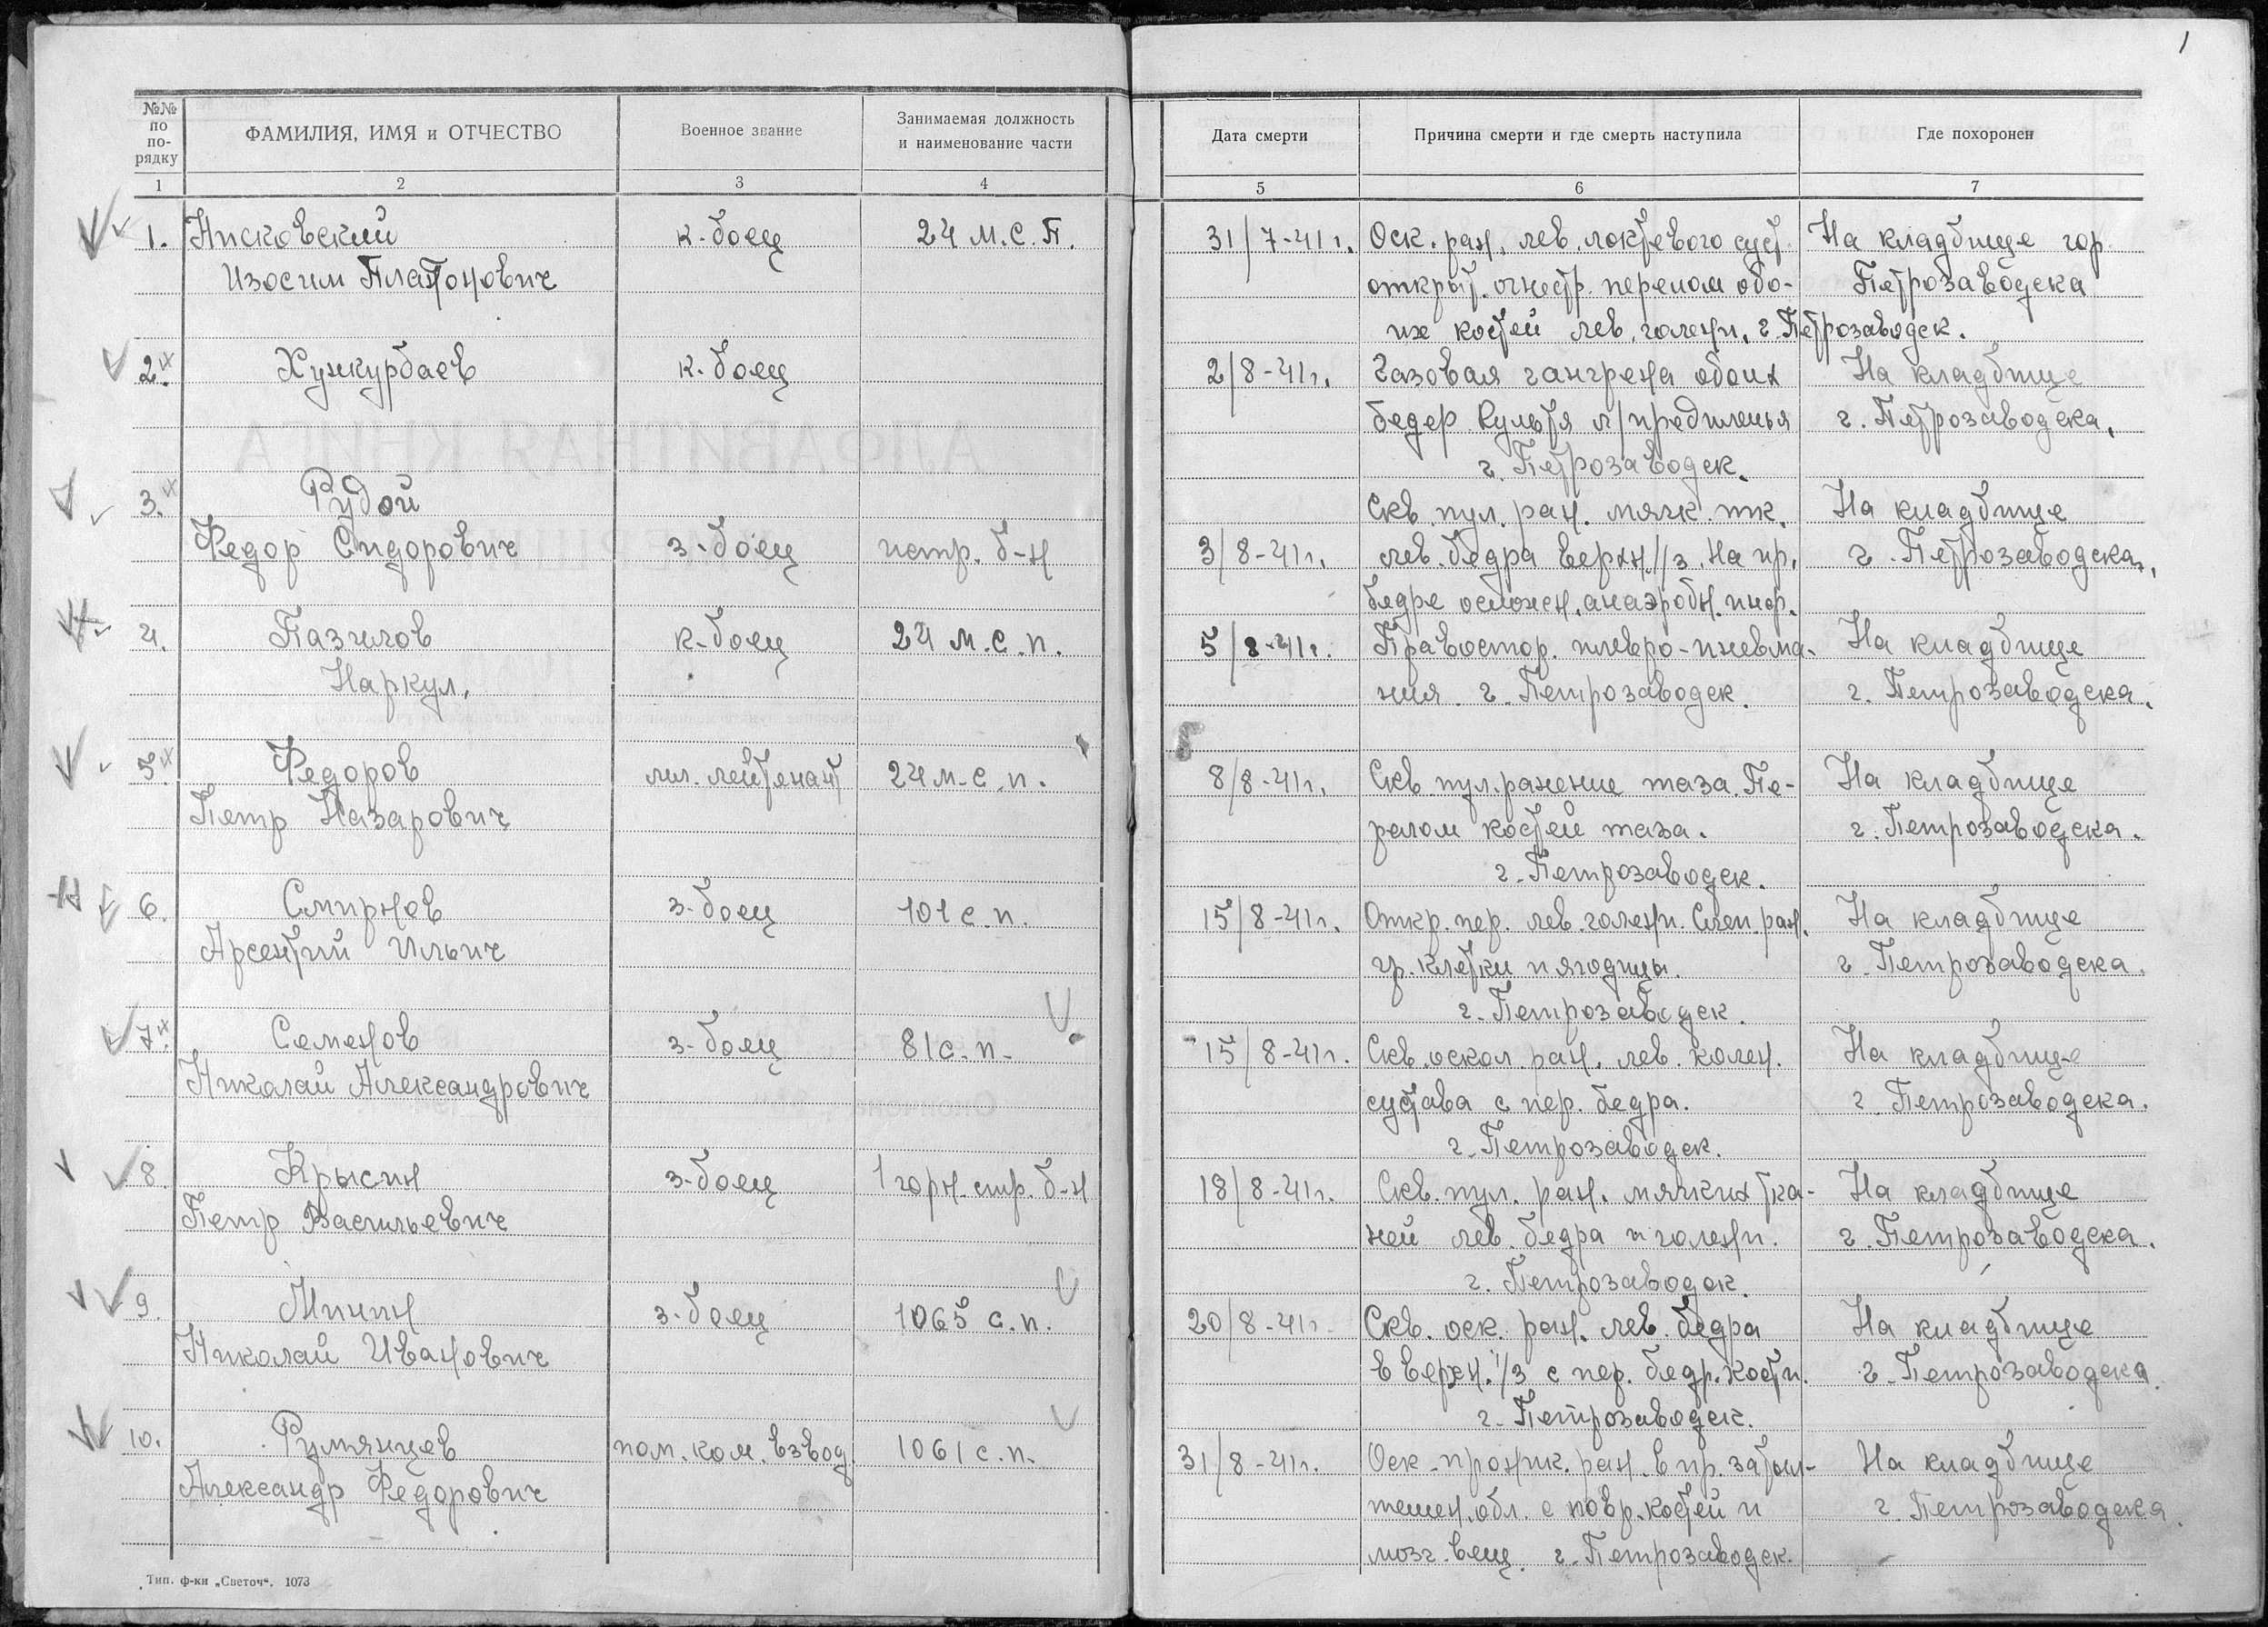 1
№№ по по-рядку
ФАМИЛИЯ, ИМЯ и ОТЧЕСТВО
Военное звание
Занимаемая должность и наименование части
Дата смерти
Причина смерти и где смерть наступила
Где похоронен
1 2 3 4 5 6 7
1. Нисковский к-боец 24 м.с.п. 31/7-41г. Оск. ран. лев. локтевого суст. На кладбище гор.
Изосим Платонович открыт. огнестр. перелом обо- Петрозаводска
их костей лев. голени. г. Петрозаводск.
2. Хужкурбаев к-боец 2/8-41г. Газовая гангрена обоих На кладбище
бедер Культя л/предплечья г. Петрозаводска.
г. Петрозаводск.
3. Рудой Скв. пул. ран. мягк. тк. На кладбище
Федор Сидорович з-боец истр. б-н 3/8-41г. лев. бедра верхн. 1/3. На пр. г. Петрозаводска.
бедре осложн. анаэробн. инф.
4. Пазилов к-боец 24 м.с.п. 5/8-41г. Правостор. плевро-пневмо- На кладбище
Наркул. ния г. Петрозаводск. г. Петрозаводска.
5. Федоров мл. лейтенант 24 м.с.п. 8/8-41г. Скв. пул. ранение таза. Пе- На кладбище
Петр Назарович релом костей таза. г. Петрозаводска.
г. Петрозаводск.
6. Смирнов з-боец 101 с.п. 15/8-41г. Откр. пер. лев. голени. Слеп. ран. На кладбище
Арсентий Ильич гр. клетки и ягодицы. г. Петрозаводска.
г. Петрозаводск.
7. Семенов з-боец 81 с.п. 15/8-41г. Скв. оскол. ран. лев. колен. На кладбище
Николай Александрович сустава с пер. бедра. г. Петрозаводска.
г. Петрозаводск.
8. Крысин з-боец 1 горн. стр. б-н 18/8-41г. Скв. пул. ран. мягких тка- На кладбище
Петр Васильевич ней лев. бедра и голени. г. Петрозаводска.
г. Петрозаводск.
9. Минин з-боец 1065 с.п. 20/8-41г. Скв. оск. ран. лев. бедра На кладбище
Николай Иванович в верхн. 1/3 с пер. бедр. кости. г. Петрозаводска.
г. Петрозаводск.
10. Румянцев пом. ком. взвод. 1061 с.п. 31/8-41г. Оск. проник. ран. в пр. затыл- На кладбище
Александр Федорович темен. обл. с повр. костей и г. Петрозаводска.
мозг. вещ. г. Петрозаводск.
Тип. ф-ки „Светоч“. 1073